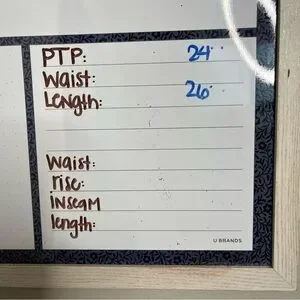 PTP: 24"
Waist:
Length: 26"
Waist:
rise:
inseam
length:
U BRANDS